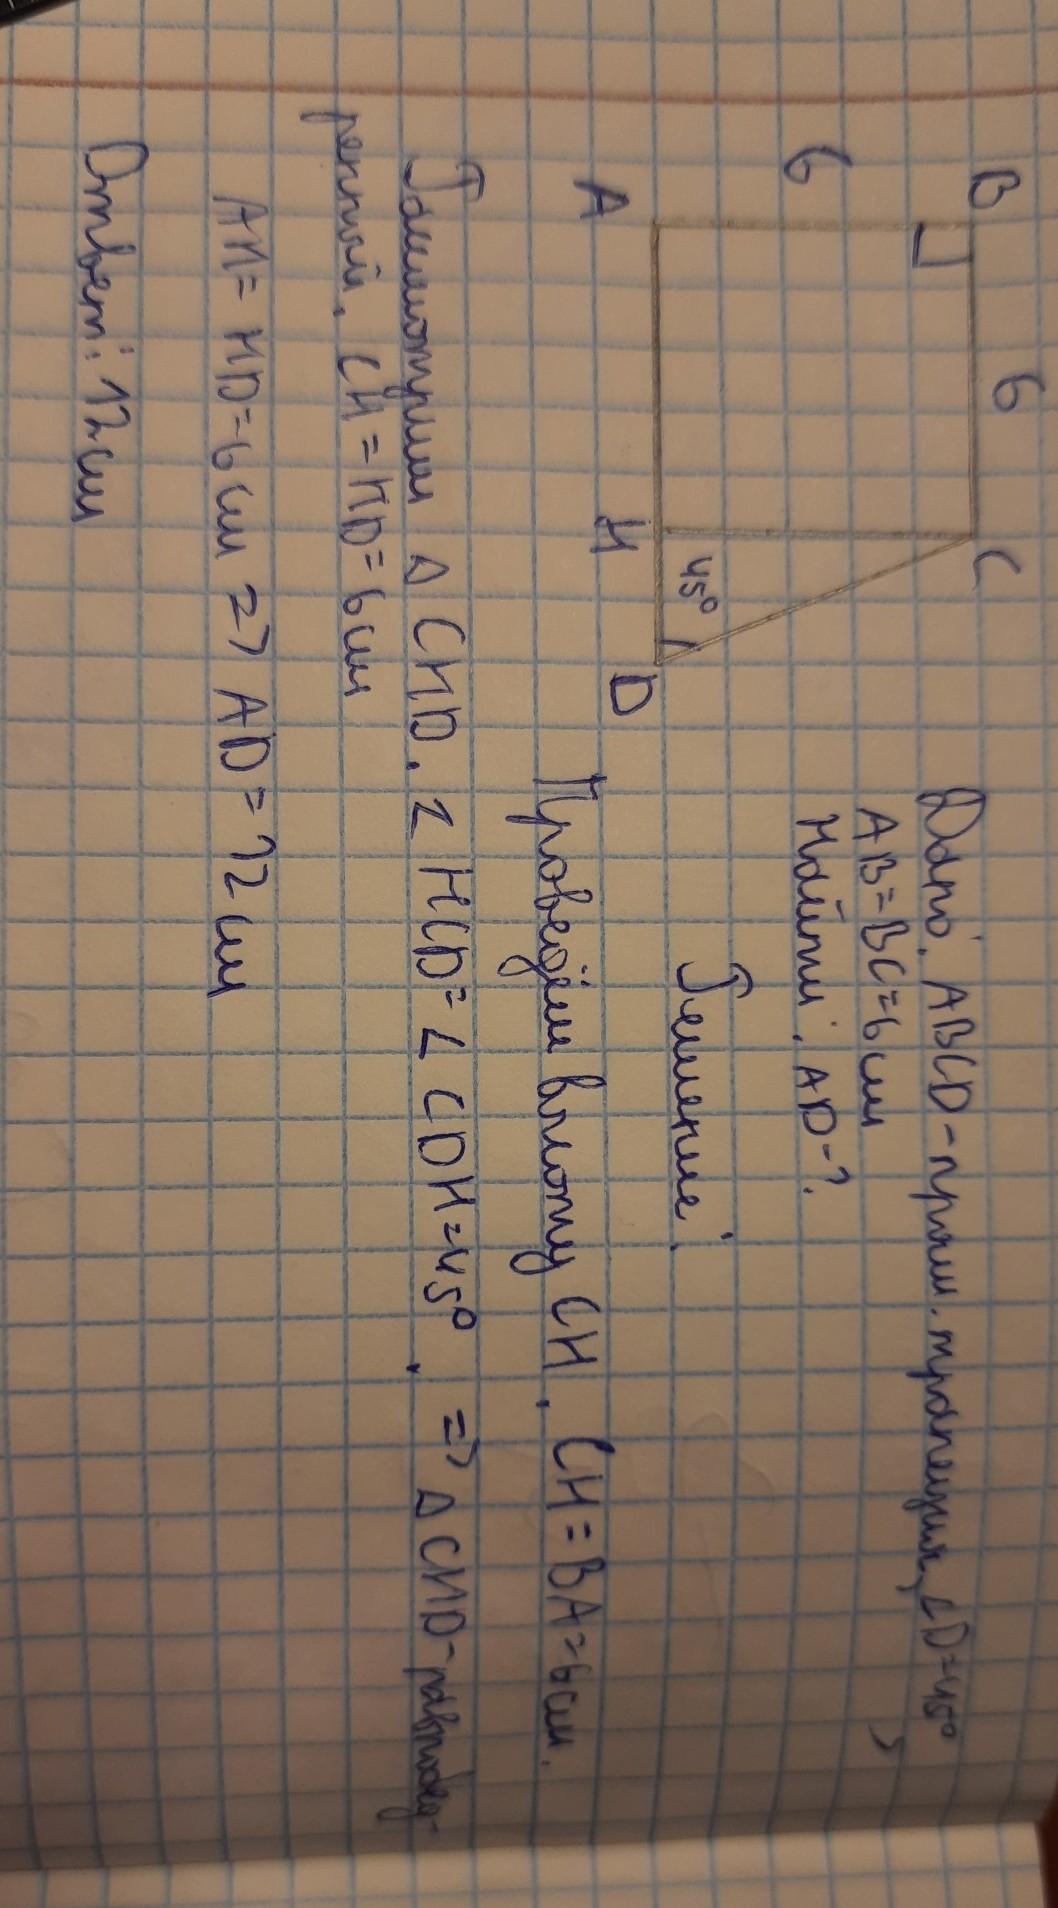 B 6 C
6
45°
A H D
Дано: ABCD - прям. трапеция, ∠D=45°,
AB=BC=6 см
Найти: AD-?
Решение:
Проведём высоту CH. CH=BA=6 см.
Рассмотрим Δ CHD. ∠ HCD= ∠ CDH=45°. => Δ CHD - равнобед-
ренный. CH=HD=6 см
AH= HD=6 см => AD=12 см
Ответ: 12 см